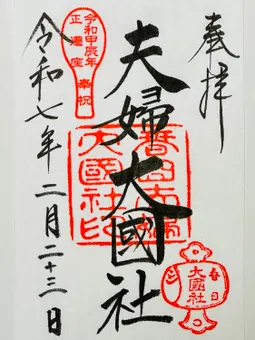 奉拝
夫婦大國社
大國社印
春日
大國社
令和甲辰年
正遷座 奉祝
令和七年二月二十三日